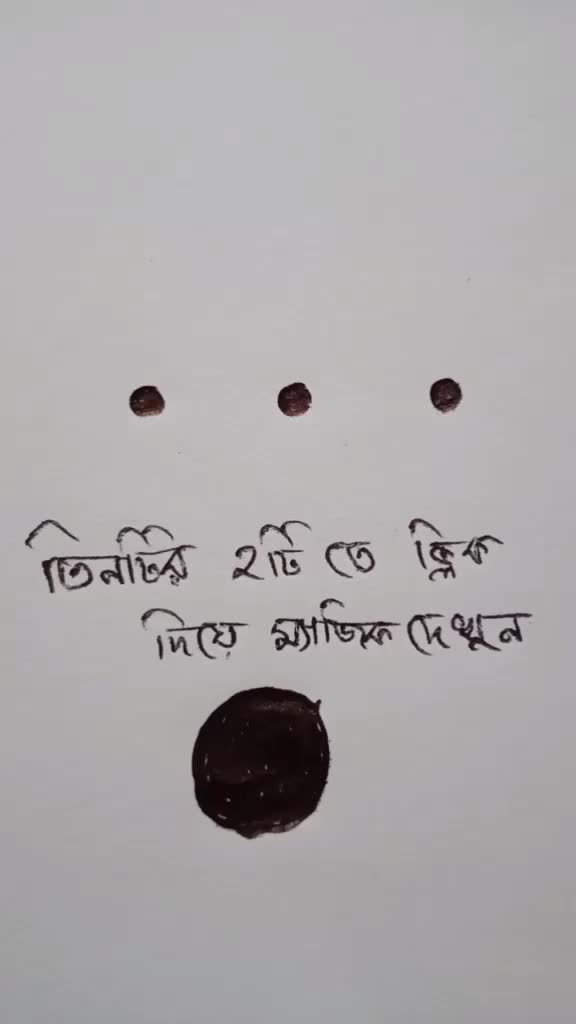 তিনটির ২টি তে ক্লিক
দিয়ে ম্যাজিক দেখুন